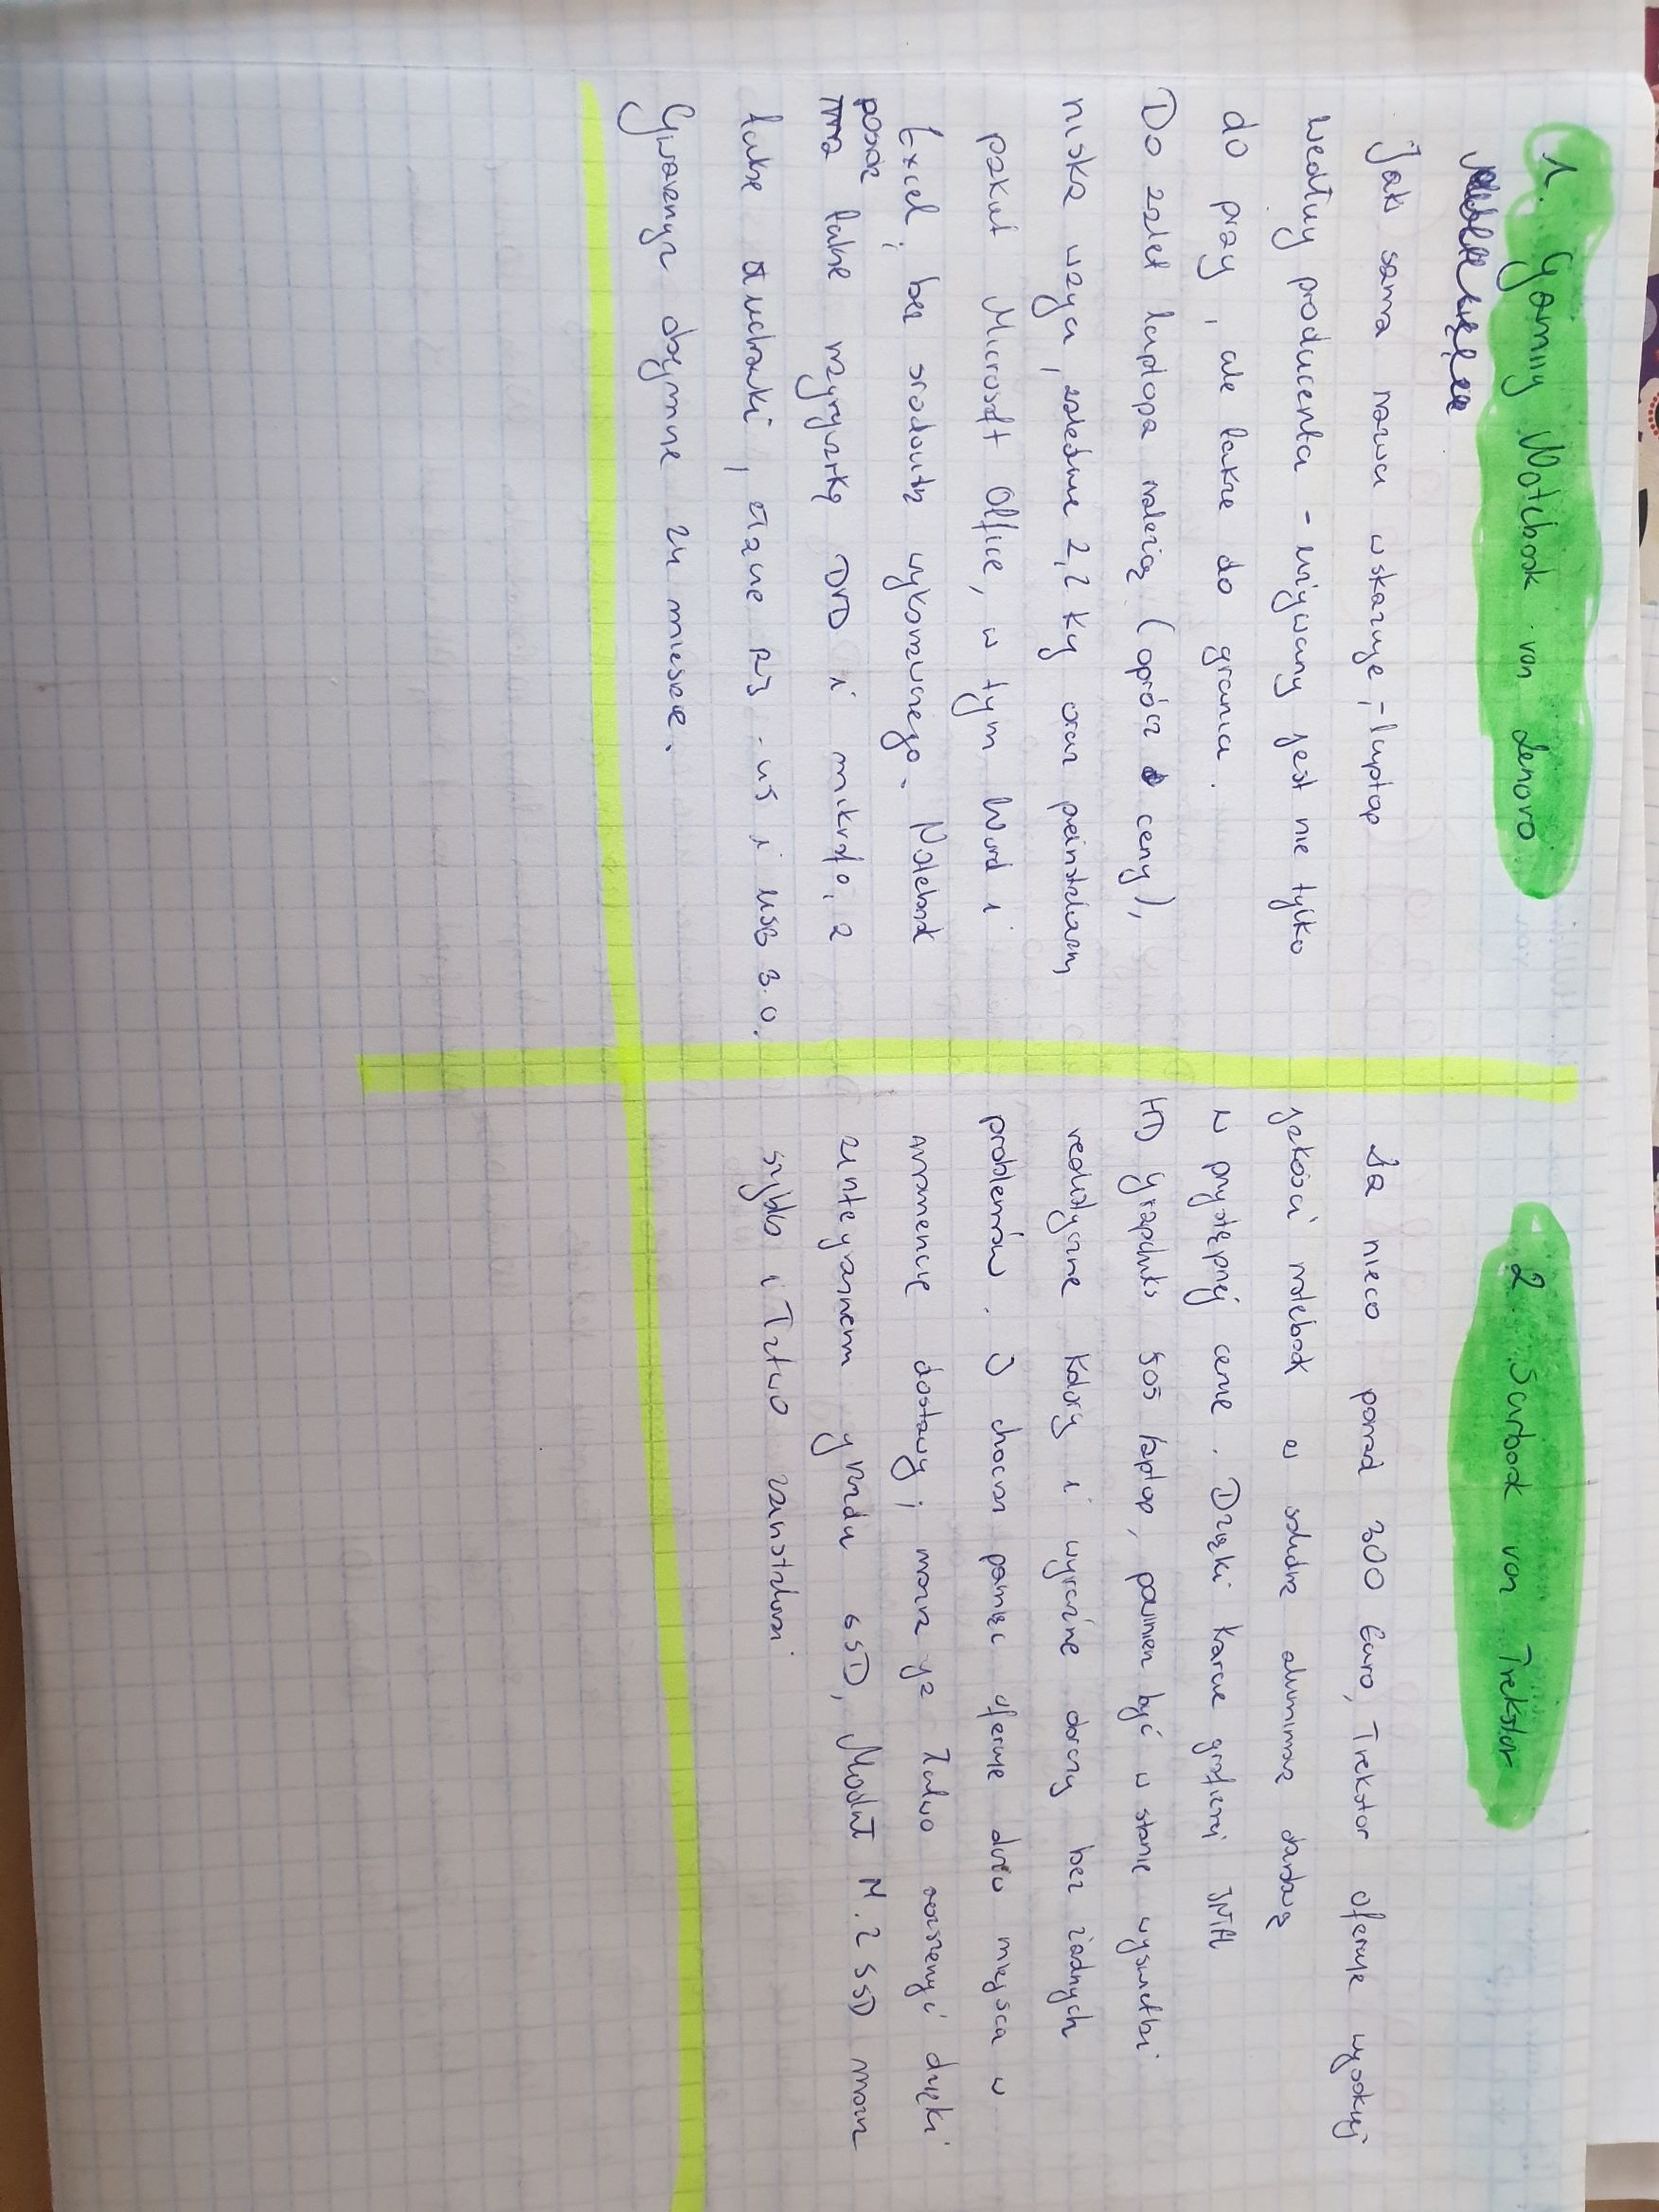 1. Gaming Notebook von Lenovo
Jak sama nazwa wskazuje, laptop
według producenta - używany jest nie tylko
do pracy, ale także do grania.
Do zalet laptopa należą (oprócz ceny),
niska waga, zaledwie 2,2 kg oraz
pakiet Microsoft Office, w tym Word i
Excel, bez środowiska wykonawczego. Notebook
posiada
ma także nagrywarkę DVD i mikrofo, 2
także, RJ-45 i USB 3.0.
2 Surfbook von Trekstor
Za nieco ponad 300 Euro, Trekstor oferuje wysokiej
jakości notebook w solidną aluminiową
w przystępnej cenie. Dzięki karcie graficznej INTEL
HD Graphiks 505 laptop, powinien być w stanie wyświetlać
realistyczne kolory i wyraźne obrazy bez żadnych
problemów. I chociaż pamięć oferuje dużo miejsca w
momencie dostawy, można ją łatwo rozszerzyć dzięki
zintegrowanemu SSD, Moduł M.2 SSD można
szybko i łatwo zainstalować